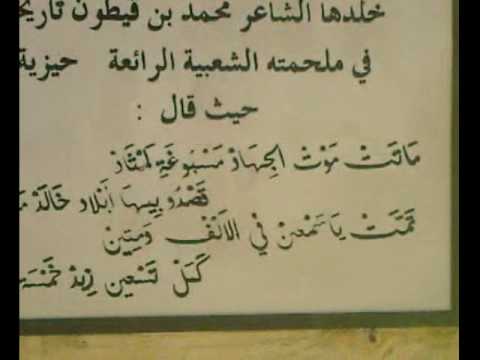 خلدها الشاعر محمد بن قيطون تاريخ
في ملحمته الشعبية الرائعة حيزية
حيث قال :
مَاتَتْ مَوْتْ الجِهَادْ مَسْبُوغَة لَمْثَادْ
قَصْدُو بِيهَا أبْلَاد خَالَدْ
تَمَّتْ يَاسَمْعِنْ فِي الأَلْفْ وَمِيتِينْ
كَمَّلْ تَسْعِين زِيدْ خَمْسَ